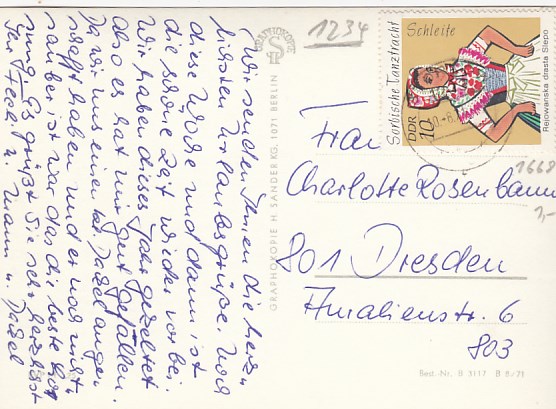 Wir senden Ihnen die herz-
lichsten Urlaubsgrüße. Noch
diese Woche und dann ist
die schöne Zeit wieder vorbei.
Wir haben dieses Jahr gezeltet
also es hat mir gut gefallen.
Da wir uns einen
schafft haben und er noch nicht
sauber ist war das die beste
Es grüßt Sie sehr herzlichst
Ihr u. Mann u.
GRAPHOKOPIE
1234
GRAPHOKOPIE H. SANDER KG. 1071 BERLIN
Sorbische Tanztracht
Schleife
DDR
10
Rejowanska drasta Slepo
Frau
Charlotte Rosenbaum
801 Dresden
Amalienstr. 6
803
1668
Best.-Nr. B 3117 B 8/71